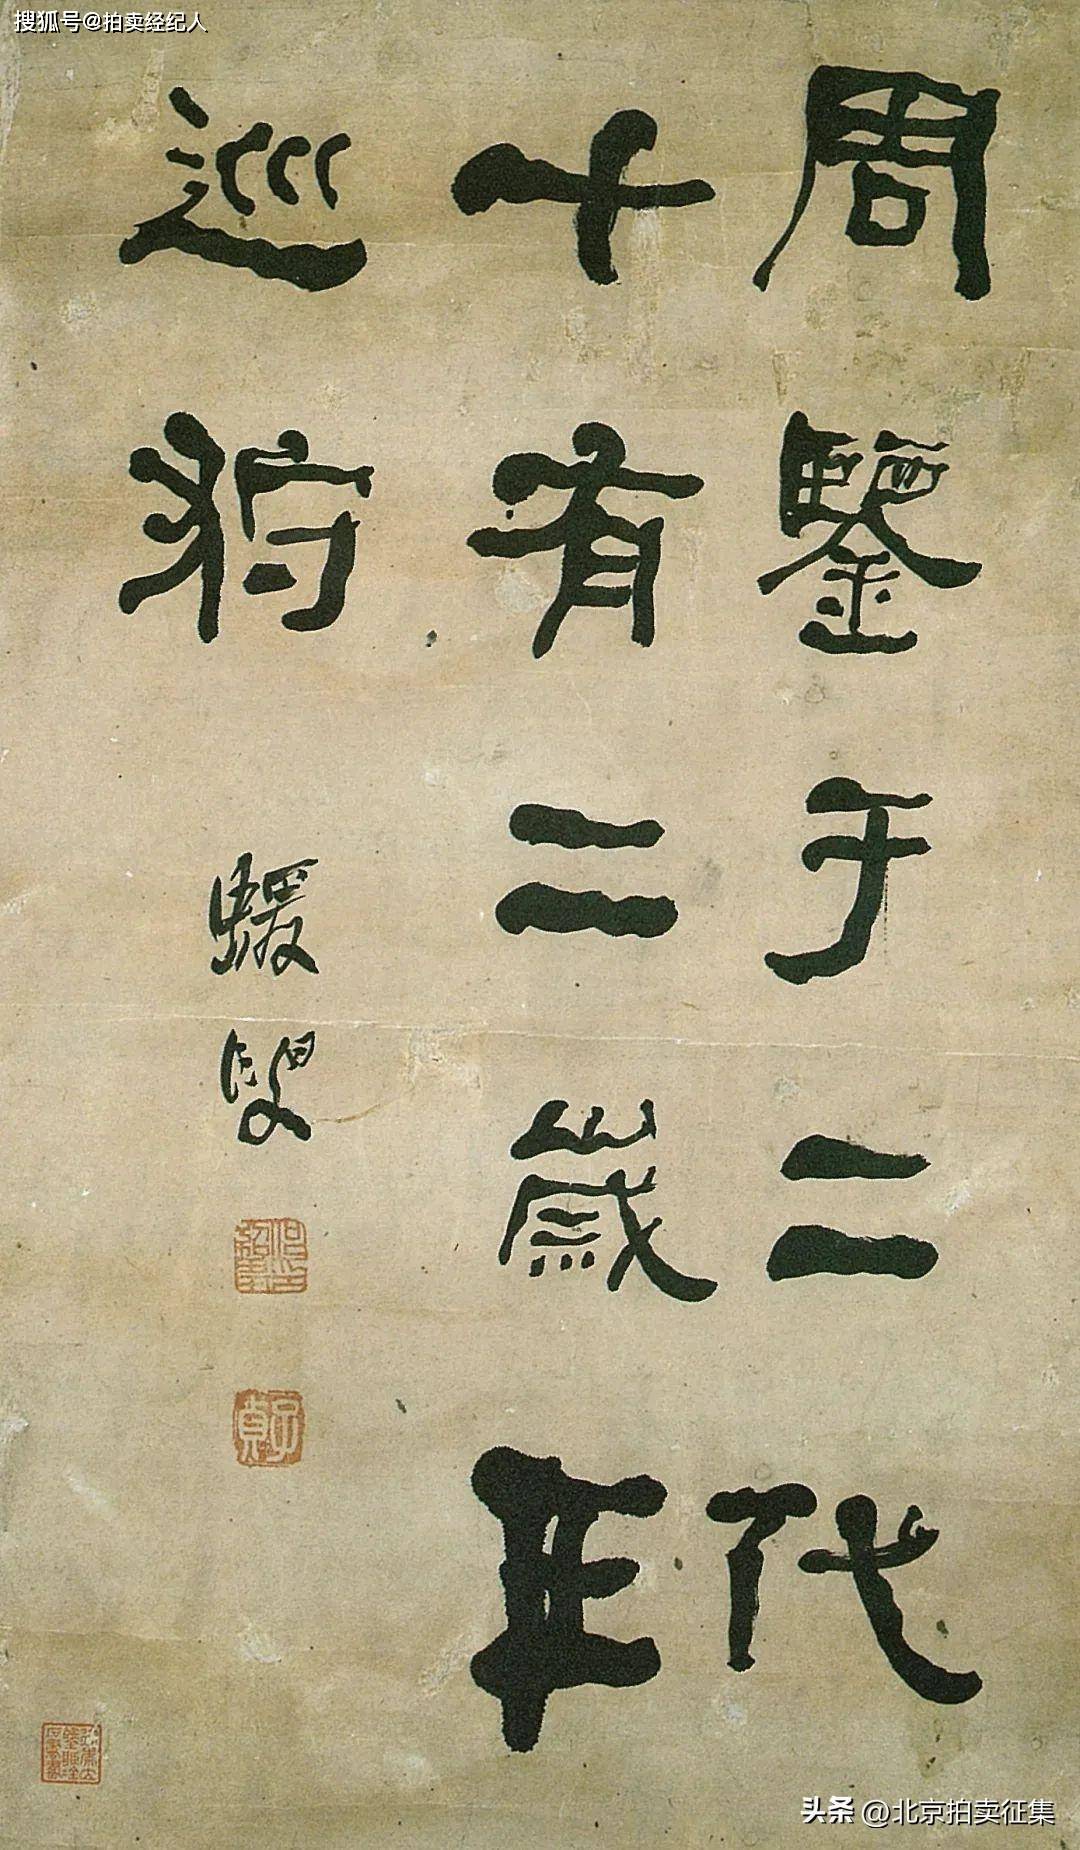 搜狐号@拍卖经纪人
周鑒于二代
十有二歲年
巡狩
蝯叟
何紹基印
子貞
头条 @北京拍卖征集